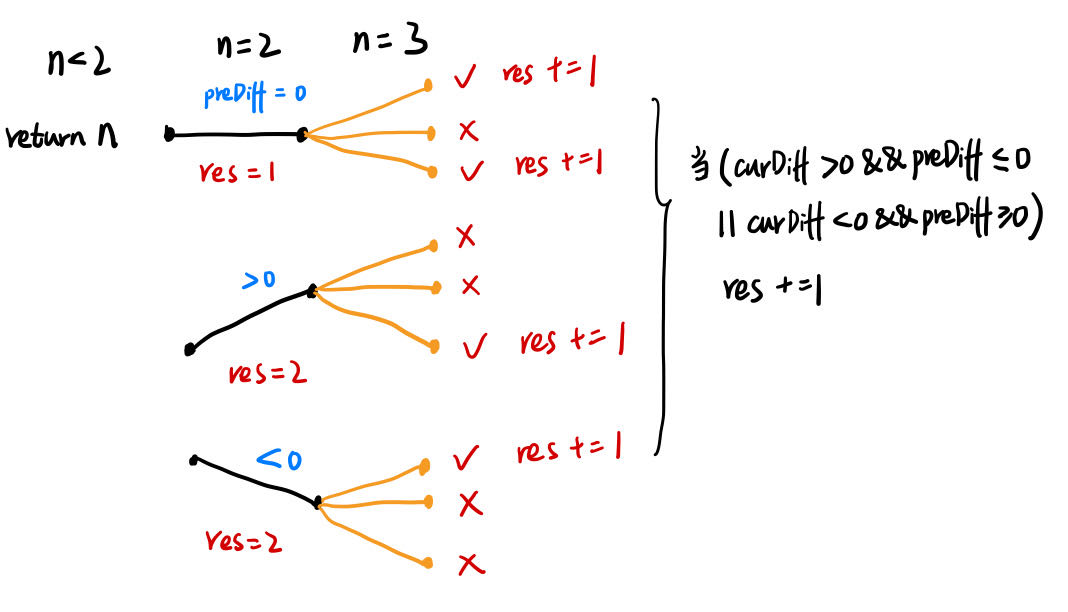 n<2
n=2
n=3
return n
preDiff = 0
res = 1
✓ res += 1
×
✓ res += 1
>0
res=2
×
×
✓ res += 1
<0
res=2
✓ res += 1
×
×
当 (curDiff >0 && preDiff ≤ 0
|| curDiff <0 && preDiff ≥0)
res +=1